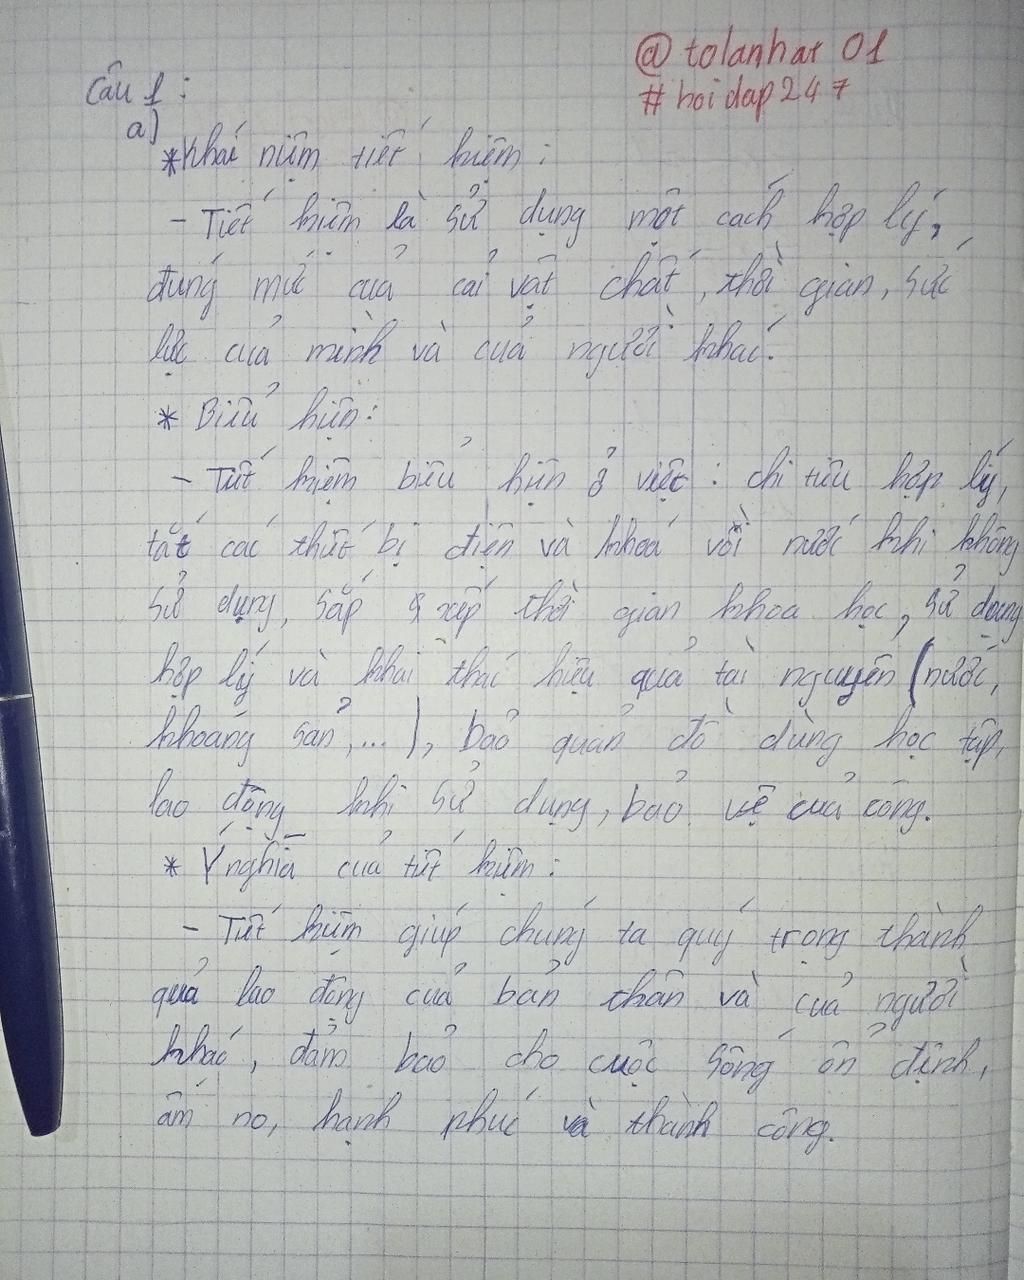 @ tolanhat 01
# hoidap247
Câu 1 :
a)
* Khái niệm tiết kiệm :
- Tiết kiệm là sử dụng một cách hợp lý,
đúng mức của cải vật chất, thời gian, sức
lực của mình và của người khác.
* Biểu hiện :
- Tiết kiệm biểu hiện ở việc : chi tiêu hợp lý,
tắt các thiết bị điện và khoá vòi nước khi không
sử dụng, sắp xếp thời gian khoa học, sử dụng
hợp lý và khai thác hiệu quả tài nguyên (nước,
khoáng sản,...), bảo quản đồ dùng học tập,
lao động khi sử dụng, bảo vệ của công.
* Ý nghĩa của tiết kiệm :
- Tiết kiệm giúp chúng ta quý trọng thành
quả lao động của bản thân và của người
khác, đảm bảo cho cuộc sống ổn định,
ấm no, hạnh phúc và thành công.